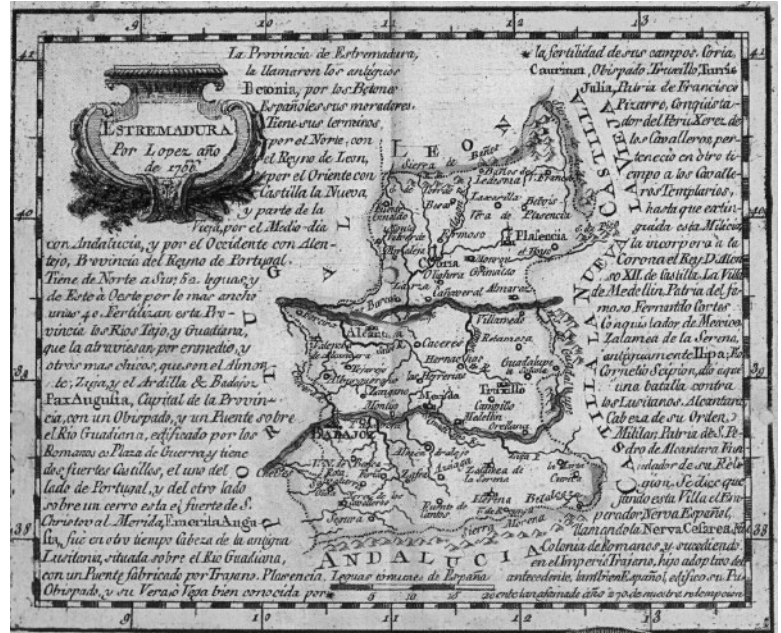 ESTREMADURA
Por Lopez año
de 1766
La Provincia de Estremadura,
la llamaron los antiguos
Betonia, por los Betones
Españoles sus moradores.
Tiene sus terminos,
por el Norte, con
el Reyno de Leon,
por el Oriente con
Castilla la Nueva,
y parte de la
Vieja, por el Medio-dia
con Andalucia, y por el Occidente con Alen-
tejo, Provincia del Reyno de Portugal.
Tiene de Norte a Sur, 52 leguas, y
de Este à Oeste por lo mas anchi
unas 40. Fertilizan esta Pro-
vincia los Rios Tejo, y Guadiana,
que la atraviesan por enmedio, y
otros mas chicos, que son el Almon
te, Zuja, y el Ardilla & Badajoz
Pax Augusta, Capital de la Provin-
cia, con un Obispado, y un Puente sobre
el Rio Guadiana, edificado por los
Romanos es Plaza de Guerra, y tiene
dos fuertes Castillos, el uno del
lado de Portugal, y del otro lado
sobre un cerro esta el fuerte de S.
Christoval Merida, Emerita Augu
sta, fue en otro tiempo Cabeza de la antigua
Lusitania, situada sobre el Rio Guadiana,
con un Puente fabricado por Trajano. Plasencia,
Obispado, y su Vera, o Vega bien conocida por
la fertilidad de sus campos. Coria,
Caurium, Obispado. Truxillo, Turris
Julia, Patria de Francisco
Pizarro, Conquista-
dor del Perù Xerez de
los Cavalleros, per-
teneciò en otro ti-
empo a los Cavalle-
ros Templarios,
hasta que extin-
guida esta Milicia,
la incorpora a la
Corona el Rey D. Alon
so XII. de Castilla. La Villa
de Medellin, Patria del fa-
moso Fernando Cortes
Conquistador de Mexico
Zalamea de la Serena,
antiguamente Ilipa,
Cornelio Scipion, dio aqui
una batalla contra
los Lusitanos. Alcantara
Cabeza de su Orden
Militar, Patria de S. Pe-
dro de Alcantara Fun-
dador de su Reli-
gion. Se dice que
fundo esta Villa el Em-
perador Nerva Español,
llamandola Nerva Cesarea
Colonia de Romanos, y sucediendo
en el Imperio Trajano, hijo adoptivo del
antecedente, tambien Español, edifico su Pu-
ente tan afamado año
de nuestra redempcion
LEON
CASTILLA LA VIEJA
CASTILLA LA NUEVA
PORTUGAL
ANDALUCIA
Sierra de Baños
Baños
Ledesma
Laxarilla
Belvis
Vera de Plasencia
Plasencia
Formoso
Coria
Grimaldo
Zarza
Cañaveral
Almaraz
Alcantara
Villamedo
Valencia de Alcantara
Caceres
Retamosa
Guadalupe
Alburquerque
las Herrerias
Truxillo
Montijo
Merida
Campillo
Medellin
Orellana
BADAJOZ
Zafra
Zalamea de la Serena
Xerez de los Cavalleros
Fuente de Cantos
Llerena
Sierra Morena
Leguas comunes de España
5 10 15 20
10 11 12 13
41 40 39 38